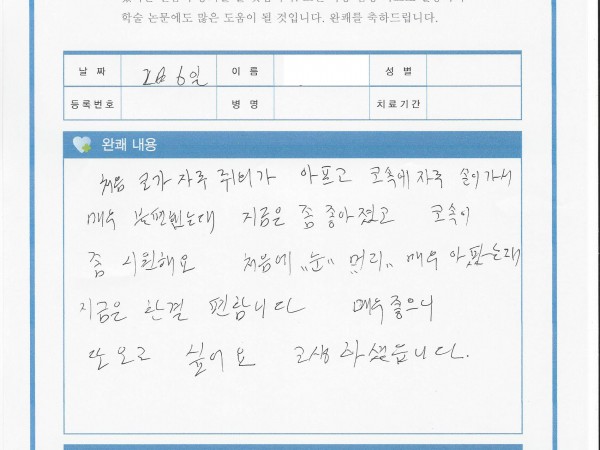 학술 논문에도 많은 도움이 될 것입니다. 완쾌를 축하드립니다.
날 짜 2월 6일 이 름 성 별
등록번호 병 명 치료기간
완쾌 내용
처음 코가 자주 아프고 코속에 자주 손이가서
매우 불편했는데 지금은 좀 좋아졌고 코속이
좀 시원해요 처음에 "눈" "머리" 매우 아팠는데
지금은 한결 편합니다 매우 좋으니
또 오고 싶어요 고생하셨습니다.